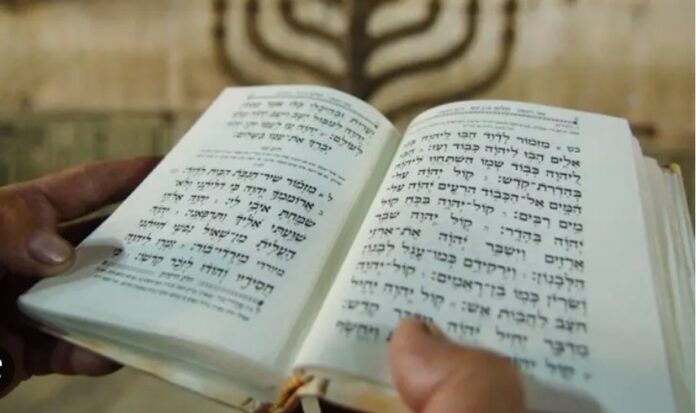 כט מזמור לדוד הבו ליהוה בני
אלים הבו ליהוה כבוד ועז: הבו
ליהוה כבוד שמו השתחוו ליהוה
בהדרת־קדש: קול יהוה על־
המים אל־הכבוד הרעים יהוה על־
מים רבים: קול־יהוה בכח קול
יהוה בהדר: קול יהוה שבר
ארזים וישבר יהוה את־ארזי
הלבנון: וירקידם כמו־עגל לבנון
ושריון כמו בן־ראמים: קול־יהוה
חצב להבות אש: קול יהוה יחיל
מדבר יחיל יהוה מדבר קדש:
קול ויחשף
יערות ובהיכלו כלו אמר כבוד:
יהוה למבול ישב וישב יהוה מלך
לעולם: יהוה עז לעמו יתן יהוה
יברך את־עמו בשלום:
ל מזמור שיר־חנכת הבית לדוד:
ארוממך יהוה כי דליתני ולא־
שמחת איבי לי: יהוה אלהי
שועתי אליך ותרפאני: יהוה
העלית מן־שאול נפשי חייתני
מירדי־בור: זמרו ליהוה
חסידיו והודו לזכר קדשו: